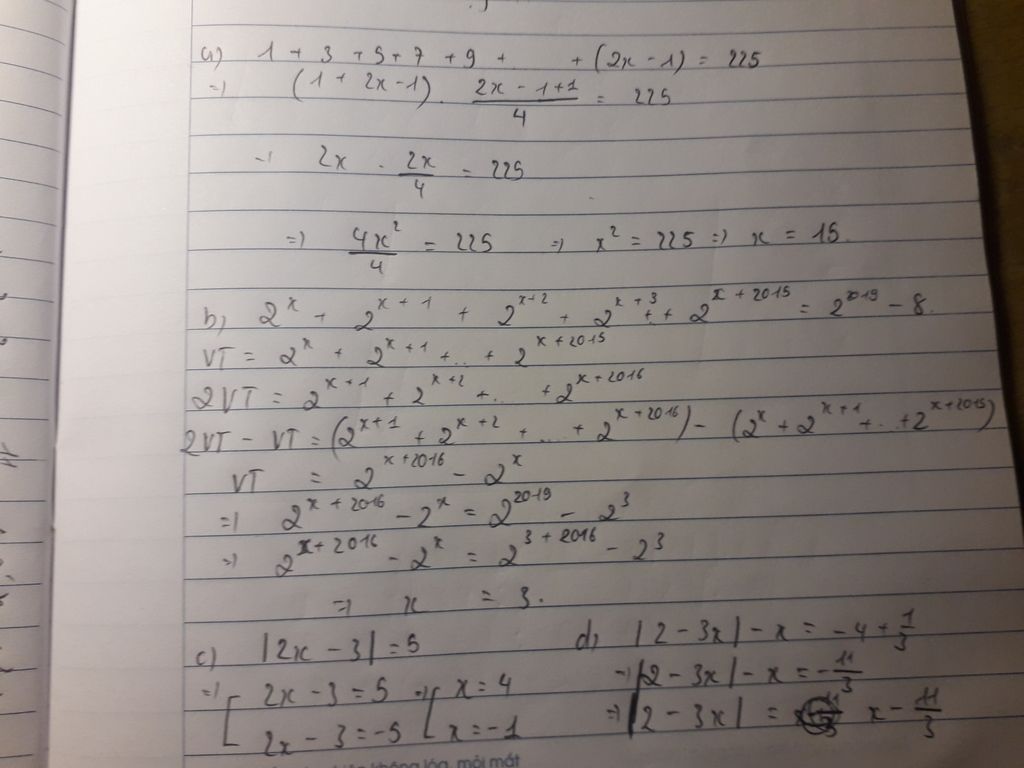 a) 1 + 3 + 5 + 7 + 9 + + (2x - 1) = 225
=> (1 + 2x - 1) . \frac{2x - 1 + 1}{4} = 225
=> 2x . \frac{2x}{4} = 225
=> \frac{4x^2}{4} = 225 => x^2 = 225 => x = 15.
b) 2^x + 2^{x+1} + 2^{x+2} + 2^{x+3} + .. + 2^{x+2015} = 2^{2019} - 8.
VT = 2^x + 2^{x+1} + .. + 2^{x+2015}
2VT = 2^{x+1} + 2^{x+2} + .. + 2^{x+2016}
2VT - VT = (2^{x+1} + 2^{x+2} + ... + 2^{x+2016}) - (2^x + 2^{x+1} + .. + 2^{x+2015})
VT = 2^{x+2016} - 2^x
=> 2^{x+2016} - 2^x = 2^{2019} - 2^3
=> 2^{x+2016} - 2^x = 2^{3+2016} - 2^3
=> x = 3.
c) |2x - 3| = 5 d) |2 - 3x| - x = -4 + \frac{1}{3}
=> [ 2x - 3 = 5 => [ x = 4 => |2 - 3x| - x = -\frac{11}{3}
2x - 3 = -5 x = -1 => |2 - 3x| = x - \frac{11}{3}